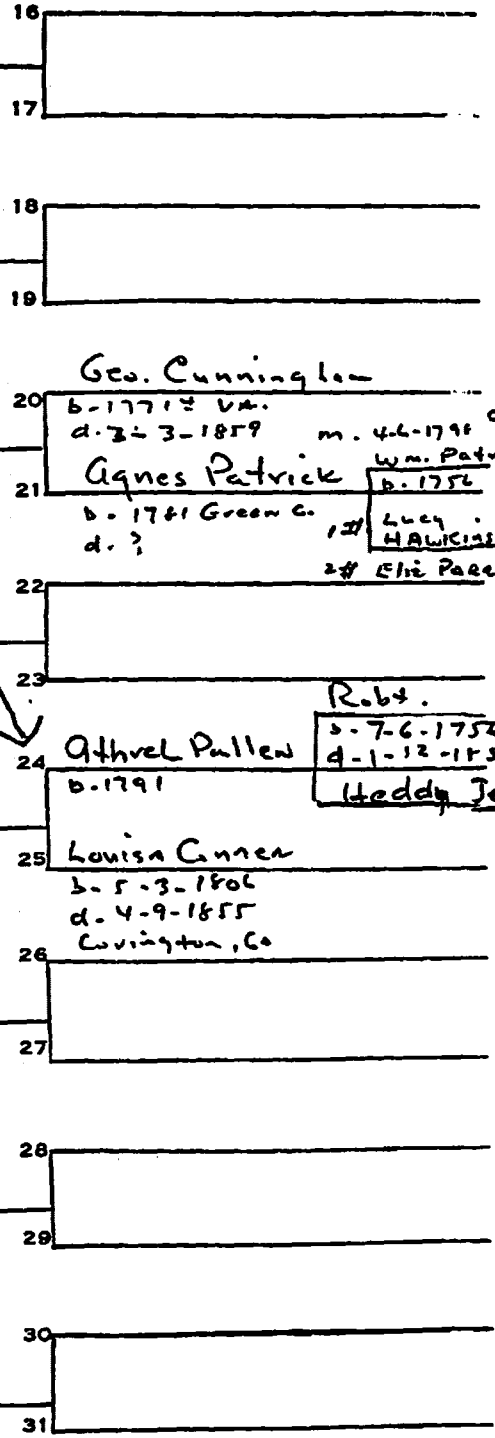 16
17
18
19
Geo. Cunningham
20
b-1771± VA.
d. 3-3-1859 m. 4-6-1798
Wm. Patr
Agnes Patrick b. 1756
21
b- 1781 Green C. 1# Lucy
d. ? HAWKINS
22 2# Eliz
23
Robt.
b- 7-6-1756
24 Athrel Pullen d-1-12-185
b-1791 Heddy Je
25 Louisa Conner
b- 5-3-1806
d- 4-9-1855
Covington, Co
26
27
28
29
30
31